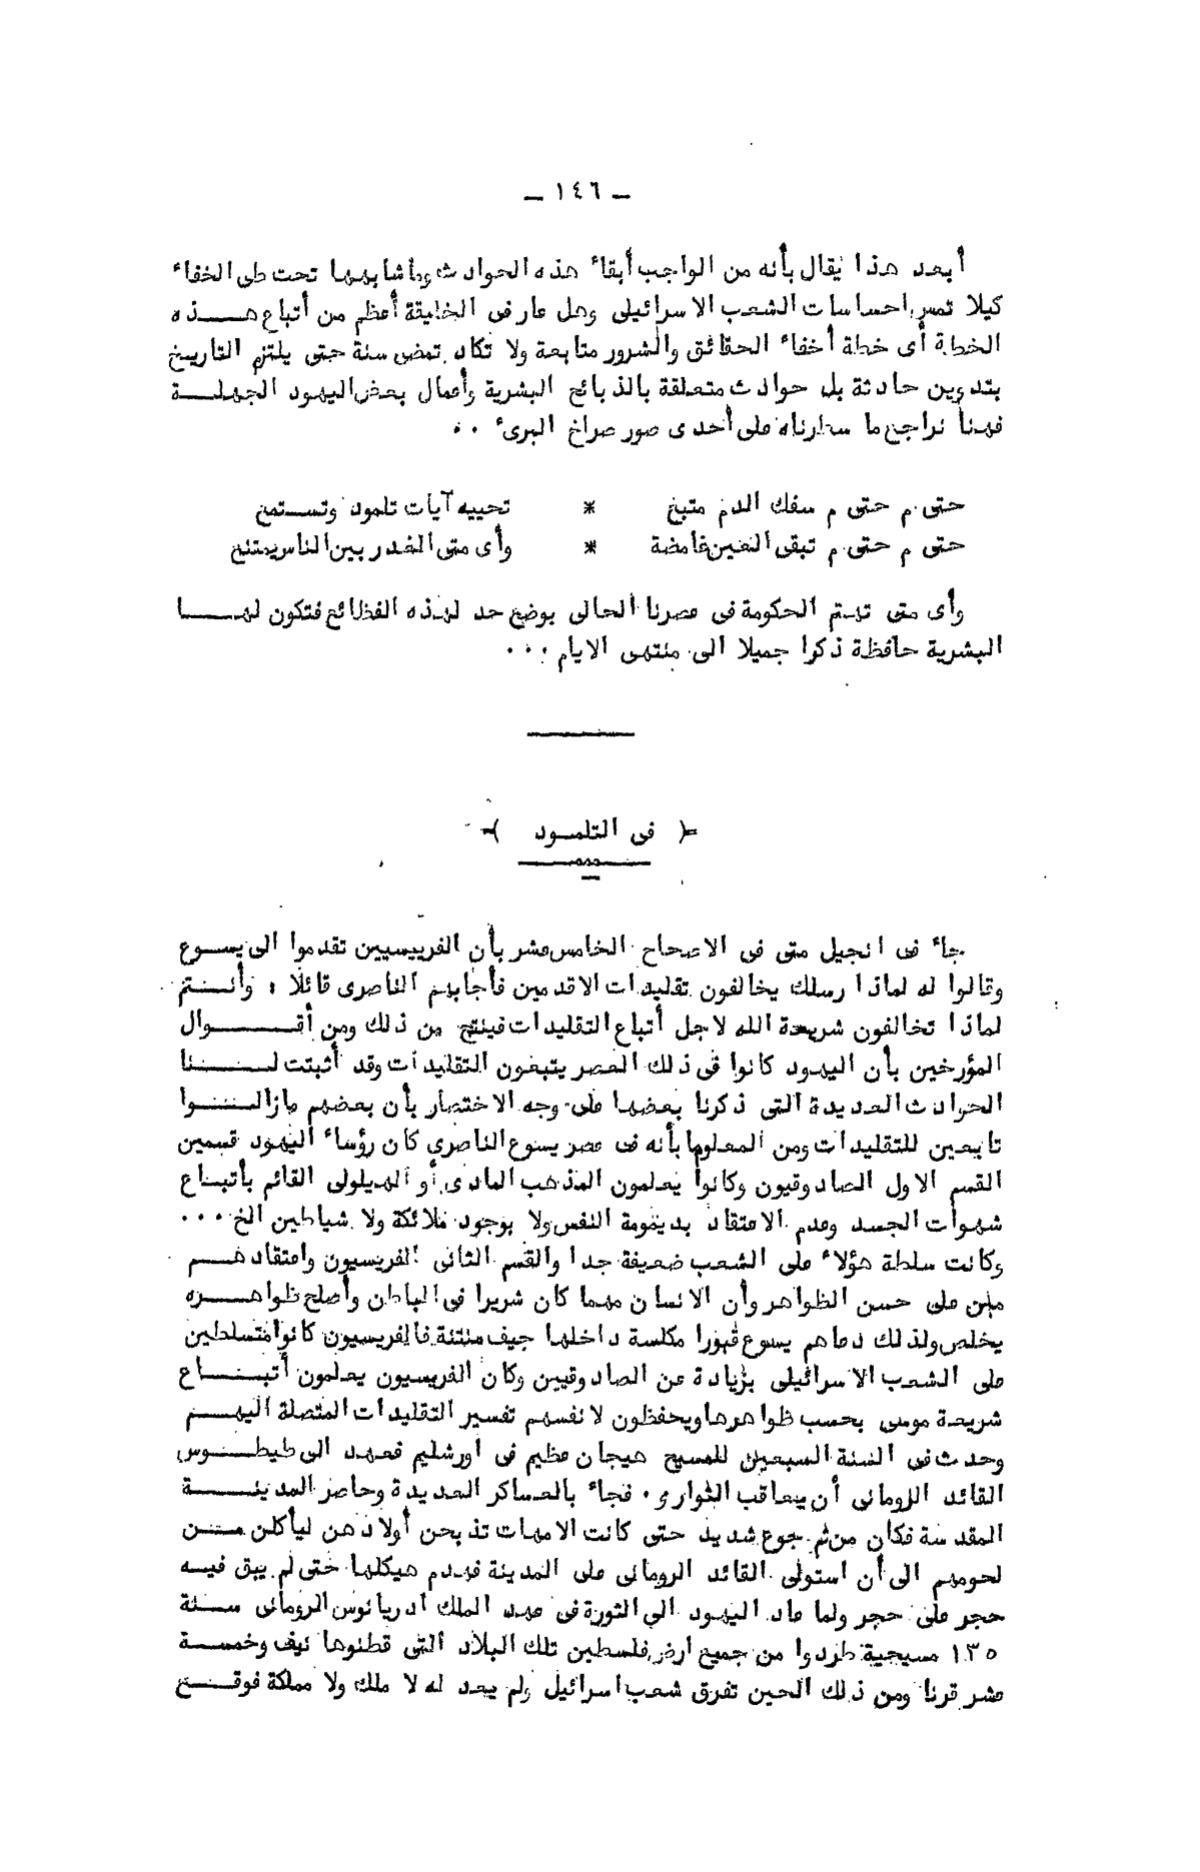 ــ ١٤٦ ــ
أبعد هذا يقال بأنه من الواجب أبقاء هذه الحوادث وما شابهها تحت طى الخفاء
كيلا تمس احساسات الشعب الاسرائيلى وهل عار فى الخليقة أعظم من أتباع هـــذه
الخطة أى خطة أخفاء الحقائق والشرور متابعة ولا تكاد تمضى سنة حتى يلتزم التاريخ
بتدوين حادثة بل حوادث متعلقة بالذبائح البشرية وأعمال بعض اليهود الجهلــة
فهنا نراجع ما سطرناه على أحدى صور صراخ البرىء ٠٠
حتى م حتى م سفك الدم متبع * تحييه آيات تلمود وتستمع
حتى م حتى م تبقى العين غامضة * وأى متى الغدر بين الناس يمتنع
وأى متى تهتم الحكومة فى عصرنا الحالى بوضع حد لهذه الفظائع فتكون لهــــا
البشرية حافظة ذكرا جميلا الى منتهى الايام ٠٠٠
﴿ فى التلمــود ﴾
جاء فى انجيل متى فى الاصحاح الخامس عشر بأن الفريسيين تقدموا الى يســوع
وقالوا له لماذا رسلك يخالفون تقليدات الاقدمين فأجابهم الناصرى قائلا : وأنــتم
لماذا تخالفون شريعة الله لاجل أتباع التقليدات فينتج من ذلك ومن أقــــوال
المؤرخين بأن اليهود كانوا فى ذلك العصر يتبعون التقليدات وقد أثبتت لــــنا
الحوادث العديدة التى ذكرنا بعضها على وجه الاختصار بأن بعضهم مازالــــوا
تابعين للتقليدات ومن المعلوم بأنه فى عصر يسوع الناصرى كان رؤساء اليهود قسمين
القسم الاول الصادوقيون وكانوا يعلمون المذهب المادى أو الهيلولى القائم بأتبــاع
شهوات الجسد وعدم الاعتقاد بديمومة النفس ولا بوجود ملائكة ولا شياطين الخ ٠٠٠
وكانت سلطة هؤلاء على الشعب ضعيفة جدا والقسم الثانى الفريسيون واعتقادهــم
مبنى على حسن الظواهر وأن الانسان مهما كان شريرا فى الباطن وأصلح ظواهــره
يخلص ولذلك دعاهم يسوع قبورا مكلسة داخلها جيف منتنة فالفريسيون كانوا متسلطين
على الشعب الاسرائيلى بزيادة عن الصادوقيين وكان الفريسيون يعلمون أتبــــاع
شريعة موسى بحسب ظواهرها ويحفظون لانفسهم تفسير التقليدات المتصلة اليهــم
وحدث فى السنة السبعين للمسيح هيجان عظيم فى اورشليم فعهد الى طيطــوس
القائد الرومانى أن يعاقب الثوارى ٠ فجاء بالعساكر العديدة وحاصر المدينــة
المقدسة فكان من ثم جوع شديد حتى كانت الامهات تذبحن أولادهن ليأكلن مــن
لحومهم الى أن استولى القائد الرومانى على المدينة فهدم هيكلها حتى لم يبق فيــه
حجر على حجر ولما عاد اليهود الى الثورة فى عهد الملك أدريانوس الرومانى سنــة
١٣٥ مسيحية طردوا من جميع ارض فلسطين تلك البلاد التى قطنوها نيف وخمســة
عشر قرنا ومن ذلك الحين تفرق شعب اسرائيل ولم يعد له لا ملك ولا مملكة فوقــع